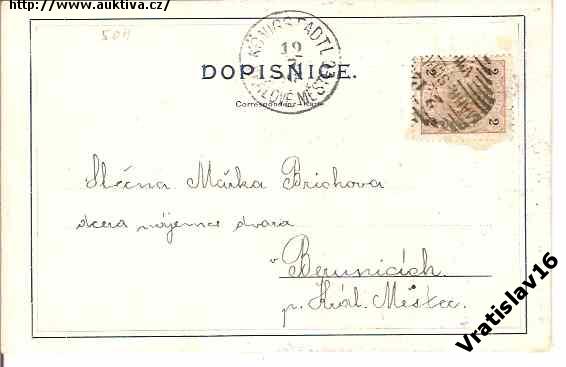 http://www.auktiva.cz/
50h
KÖNIGSTADTL
MĚSTEC KRÁLOVÉ
12
7
DOPISNICE.
Correspondenz-Karte
2 2
2 2
Slečna Mářka Brichova
dcera nájemce dvora
v Berunicích
p. Král. Městec.
Vratislav16